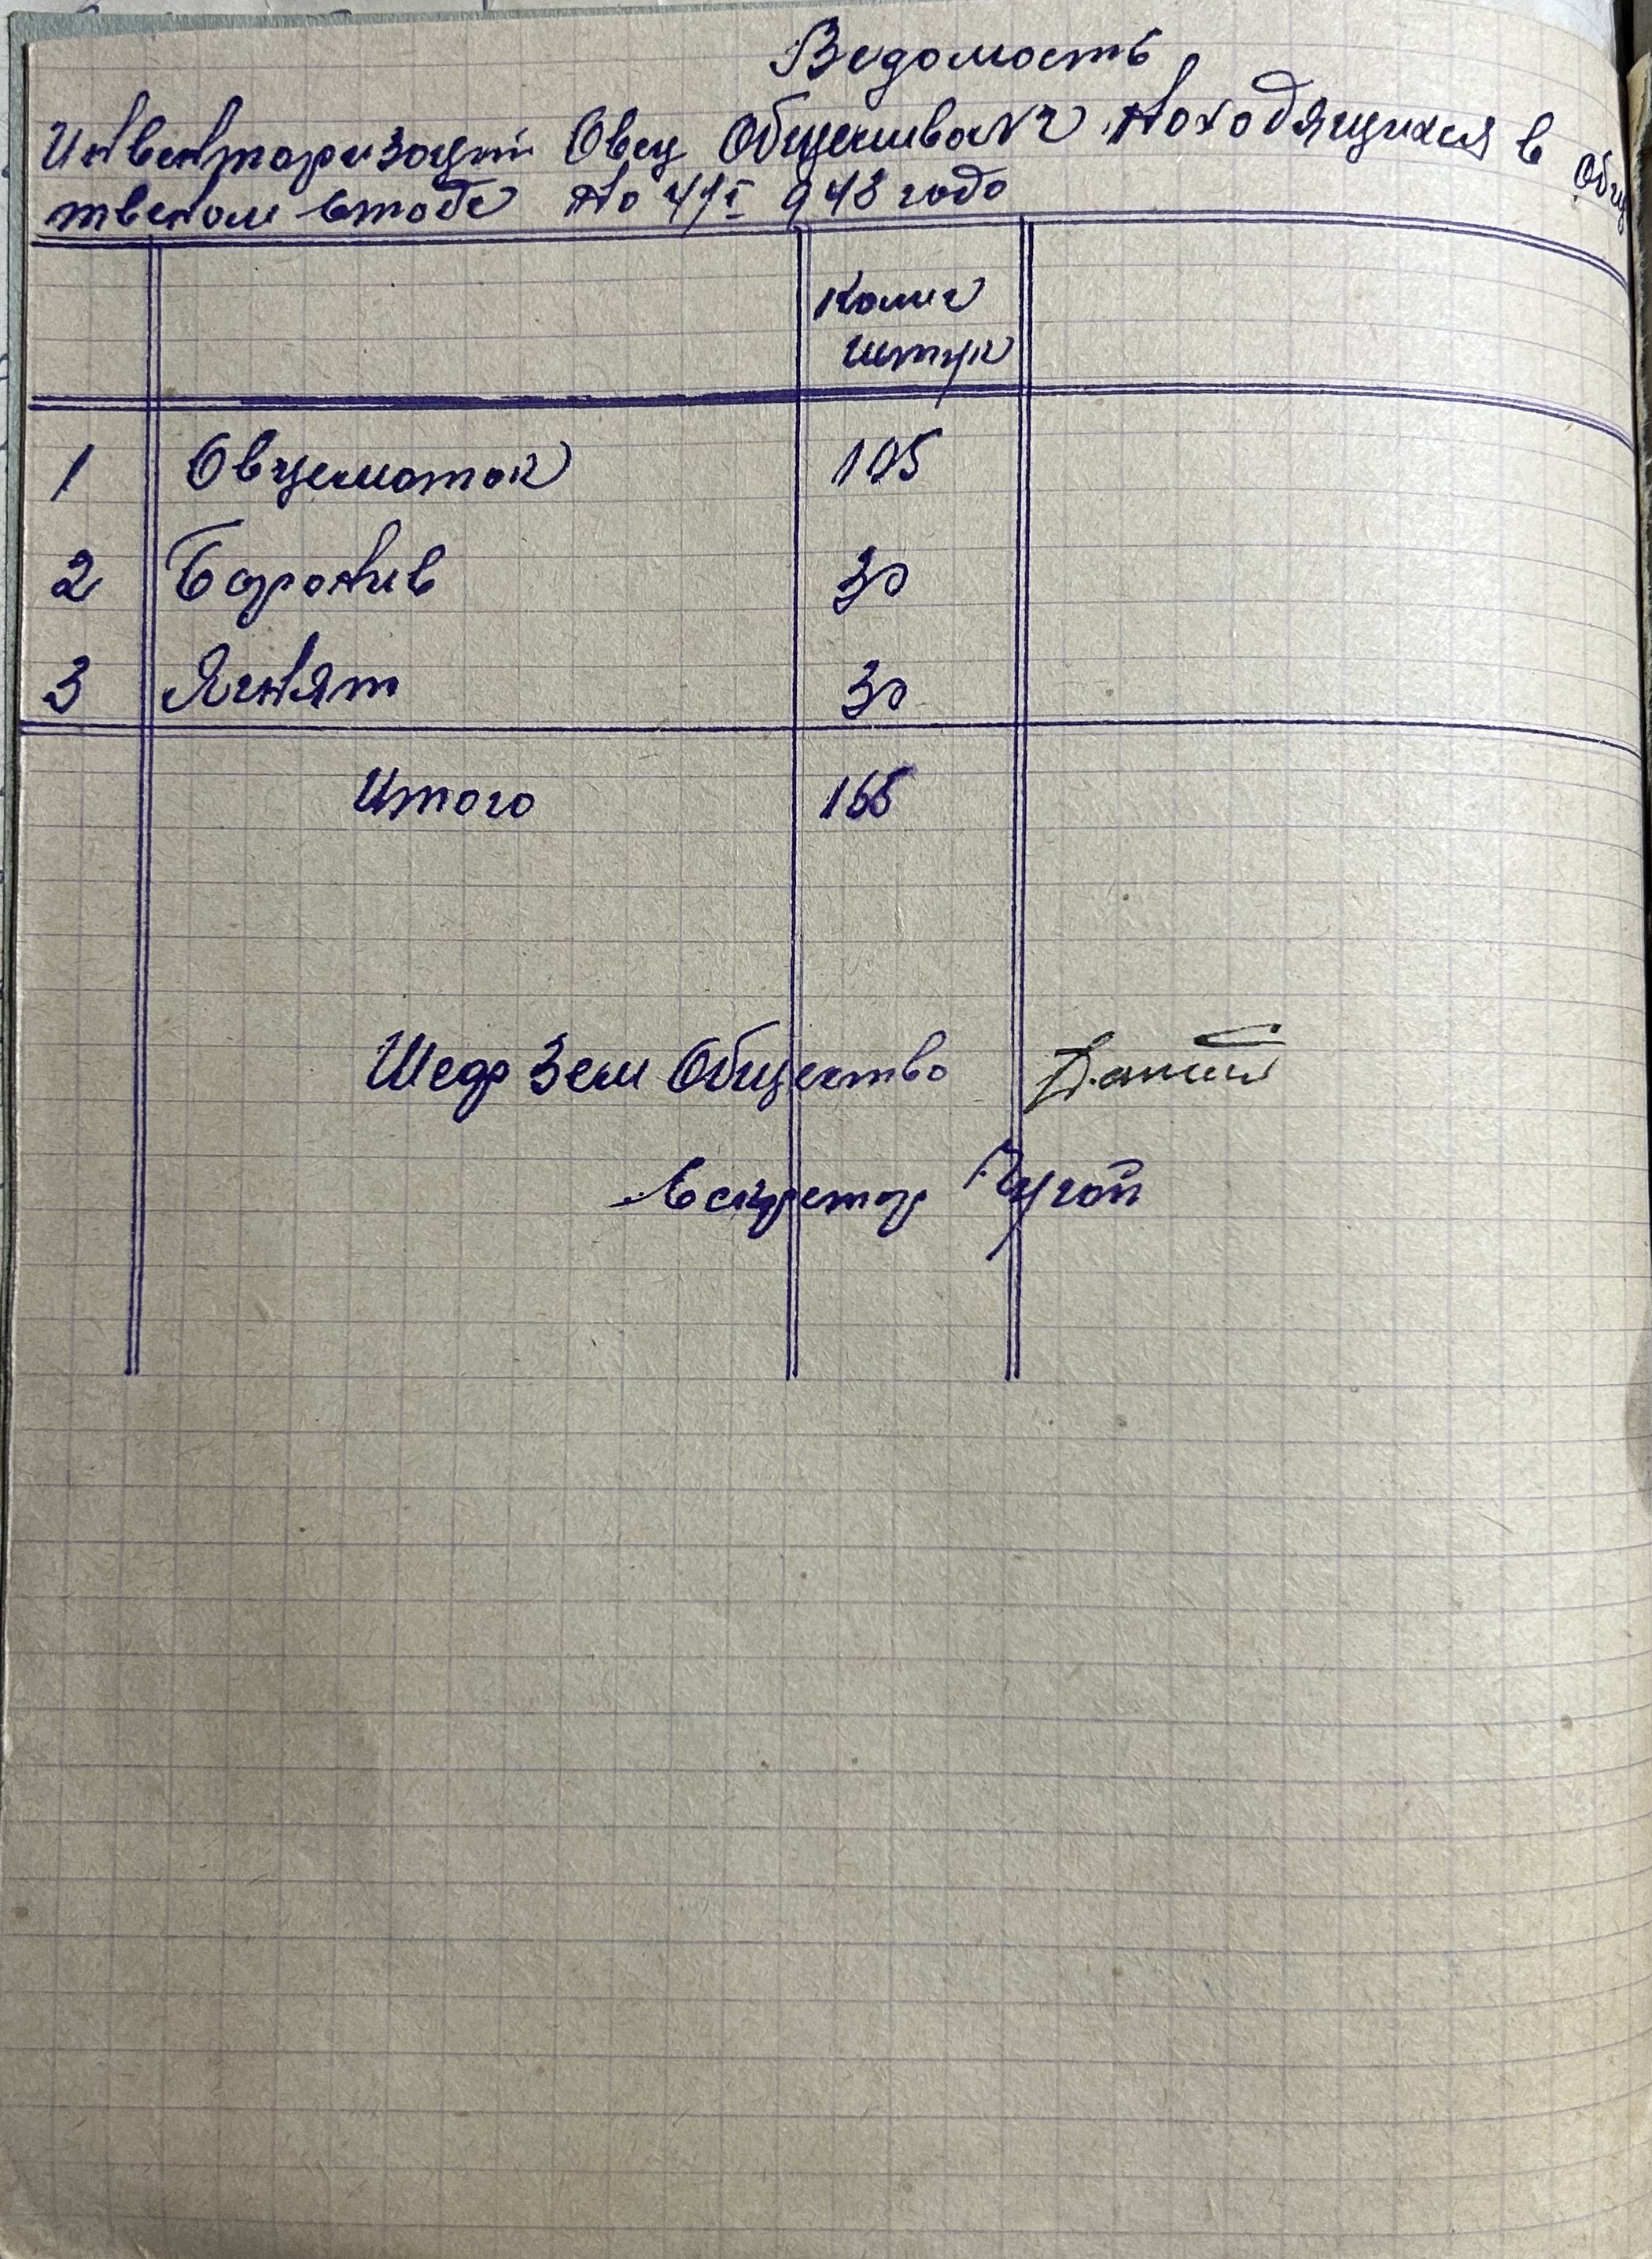 Ведомость
Инвентаризаци Овец Находящихся в Общ
твеном стаде на 1/I 948 года
Колич
штук
1 Овцематок 105
2 Баранив 30
3 Ягнят 30
Итого 165
Шеф Зем Общество
Секретар